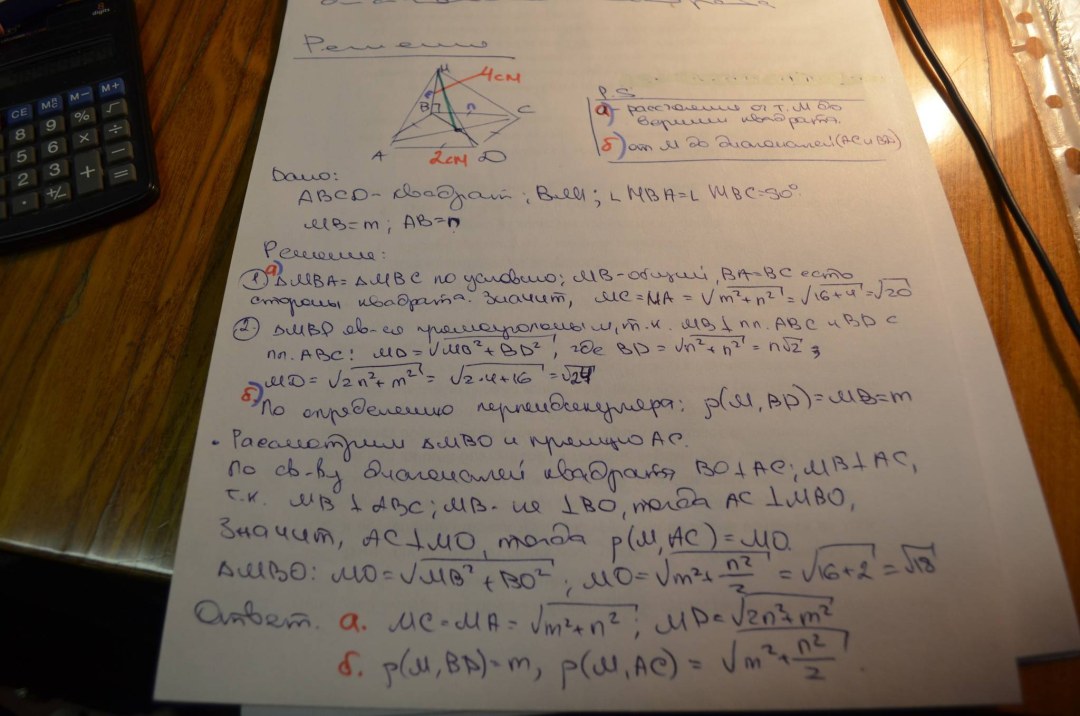 Решение
M
4см
B
n
C
A
2см
D
P.S.
а) расстояния от т. M до
вершин квадрата.
б) от M до диагоналей (AC и BD)
Дано:
ABCD - квадрат; ВМ; ∟MBA=∟MBC=90°
MB=m; AB=n
Решение:
а)
1) ΔMBA=ΔMBC по условию; MB-общий, BA=BC есть
стороны квадрата. Значит, MC=MA=√m²+n²=√16+4=√20
2. ΔMBD яв-ся прямоугольным, т.к. MB⊥пл. ABC и BD ⊂
пл. ABC: MD=√MB²+BD², где BD=√n²+n²=n√2;
MD=√2n²+m²=√2·4+16=√24
б)
По определению перпендикуляра: ρ(M,BD)=MB=m
• Рассмотрим ΔMBO и прямую AC.
По св-ву диагоналей квадрата BO⊥AC; MB⊥AC,
т.к. MB⊥ABC; MB- не ⊥BO, тогда AC⊥MBO,
Значит, AC⊥MO, тогда ρ(M,AC)=MO.
ΔMBO: MO=√MB²+BO²; MO=√m²+n²/2=√16+2=√18
Ответ. а. MC=MA=√m²+n²; MD=√2n²+m²
б. ρ(M,BD)=m, ρ(M,AC)=√m²+n²/2.
CE
M+
8
9
%
√
5
6
×
÷
2
3
+
-
.
+/-
=